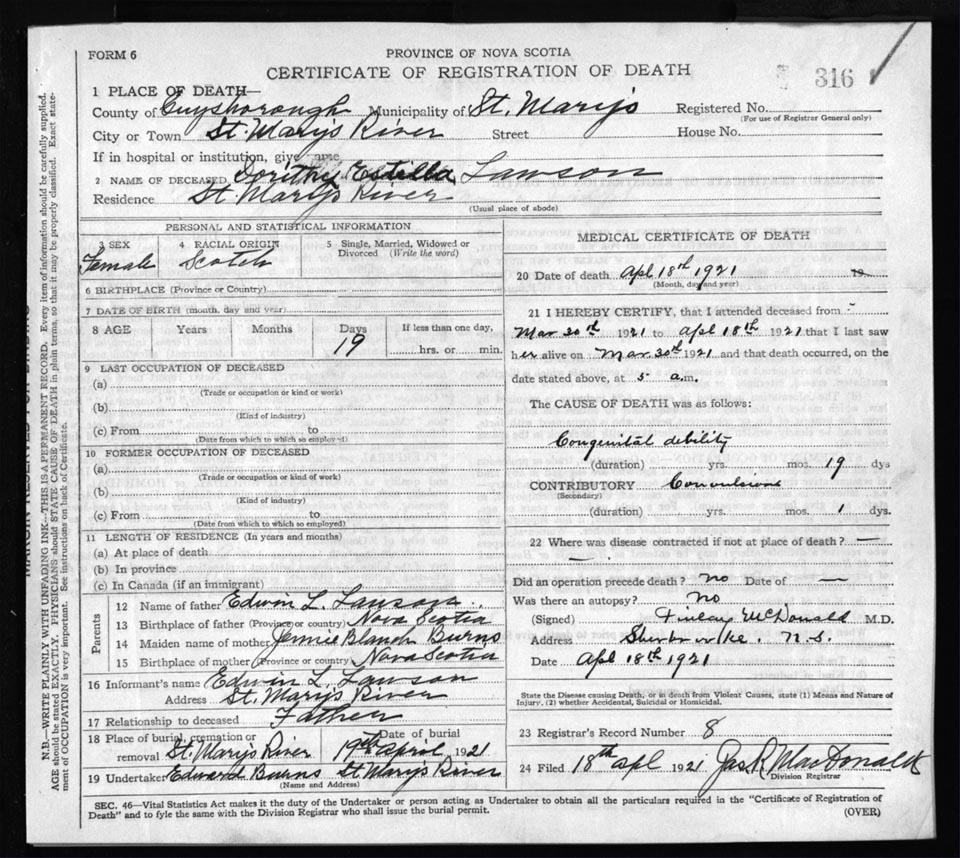 FORM 6
PROVINCE OF NOVA SCOTIA
CERTIFICATE OF REGISTRATION OF DEATH
316
1 PLACE OF DEATH—
County of Guysborough Municipality of St. Mary's Registered No.
(For use of Registrar General only)
City or Town St. Mary's River Street House No.
If in hospital or institution, give name
2 NAME OF DECEASED Dorithy Estella Lawson
Residence St. Mary's River
(Usual place of abode)
PERSONAL AND STATISTICAL INFORMATION
3 SEX Female
4 RACIAL ORIGIN Scotch
5 Single, Married, Widowed or Divorced (Write the word)
6 BIRTHPLACE (Province or Country)
7 DATE OF BIRTH (month, day and year)
8 AGE Years Months Days If less than one day,
19 hrs. or min.
9 LAST OCCUPATION OF DECEASED
(a)
(Trade or occupation or kind or work)
(b)
(Kind of industry)
(c) From to
(Date from which to which so employed)
10 FORMER OCCUPATION OF DECEASED
(a)
(Trade or occupation or kind of work)
(b)
(Kind of industry)
(c) From to
(Date from which to which so employed)
11 LENGTH OF RESIDENCE (In years and months)
(a) At place of death
(b) In province
(c) In Canada (if an immigrant)
Parents
12 Name of father Edwin L. Lawson
13 Birthplace of father (Province or country) Nova Scotia
14 Maiden name of mother Jennie Blanch Burns
15 Birthplace of mother (Province or country) Nova Scotia
16 Informant's name Edwin L. Lawson
Address St. Mary's River
17 Relationship to deceased Father
18 Place of burial, cremation or Date of burial
removal St. Marys River 19th April 1921
19 Undertaker Edward Burns St. Mary's River
(Name and Address)
MEDICAL CERTIFICATE OF DEATH
20 Date of death Apl 18th 1921 19
(Month, day and year)
21 I HEREBY CERTIFY, that I attended deceased from
Mar 30th 1921 to Apl 18th 1921 that I last saw
her alive on Mar 30th 1921 and that death occurred, on the
date stated above, at 5 a.m.
The CAUSE OF DEATH was as follows:
Congenital debility
(duration) yrs. mos. 19 dys
CONTRIBUTORY Convulsions
(Secondary)
(duration) yrs. mos. 1 dys.
22 Where was disease contracted if not at place of death? —
—
Did an operation precede death? no Date of —
Was there an autopsy? no
(Signed) Finlay McDonald M.D.
Address Sherbrooke, N.S.
Date Apl 18th 1921
State the Disease causing Death, or in death from Violent Causes, state (1) Means and Nature of
Injury, (2) whether Accidental, Suicidal or Homicidal.
23 Registrar's Record Number 8
24 Filed 18th Apl 1921 Jas R MacDonald
Division Registrar
SEC. 46—Vital Statistics Act makes it the duty of the Undertaker or person acting as Undertaker to obtain all the particulars required in the "Certificate of Registration of
Death" and to fyle the same with the Division Registrar who shall issue the burial permit.
(OVER)
N.B.—WRITE PLAINLY, WITH UNFADING INK—THIS IS A PERMANENT RECORD. Every item of information should be carefully supplied.
AGE should be stated EXACTLY. PHYSICIANS should STATE CAUSE OF DEATH in plain terms, so that it may be properly classified. Exact state-
ment of OCCUPATION is very important. See instructions on back of Certificate.